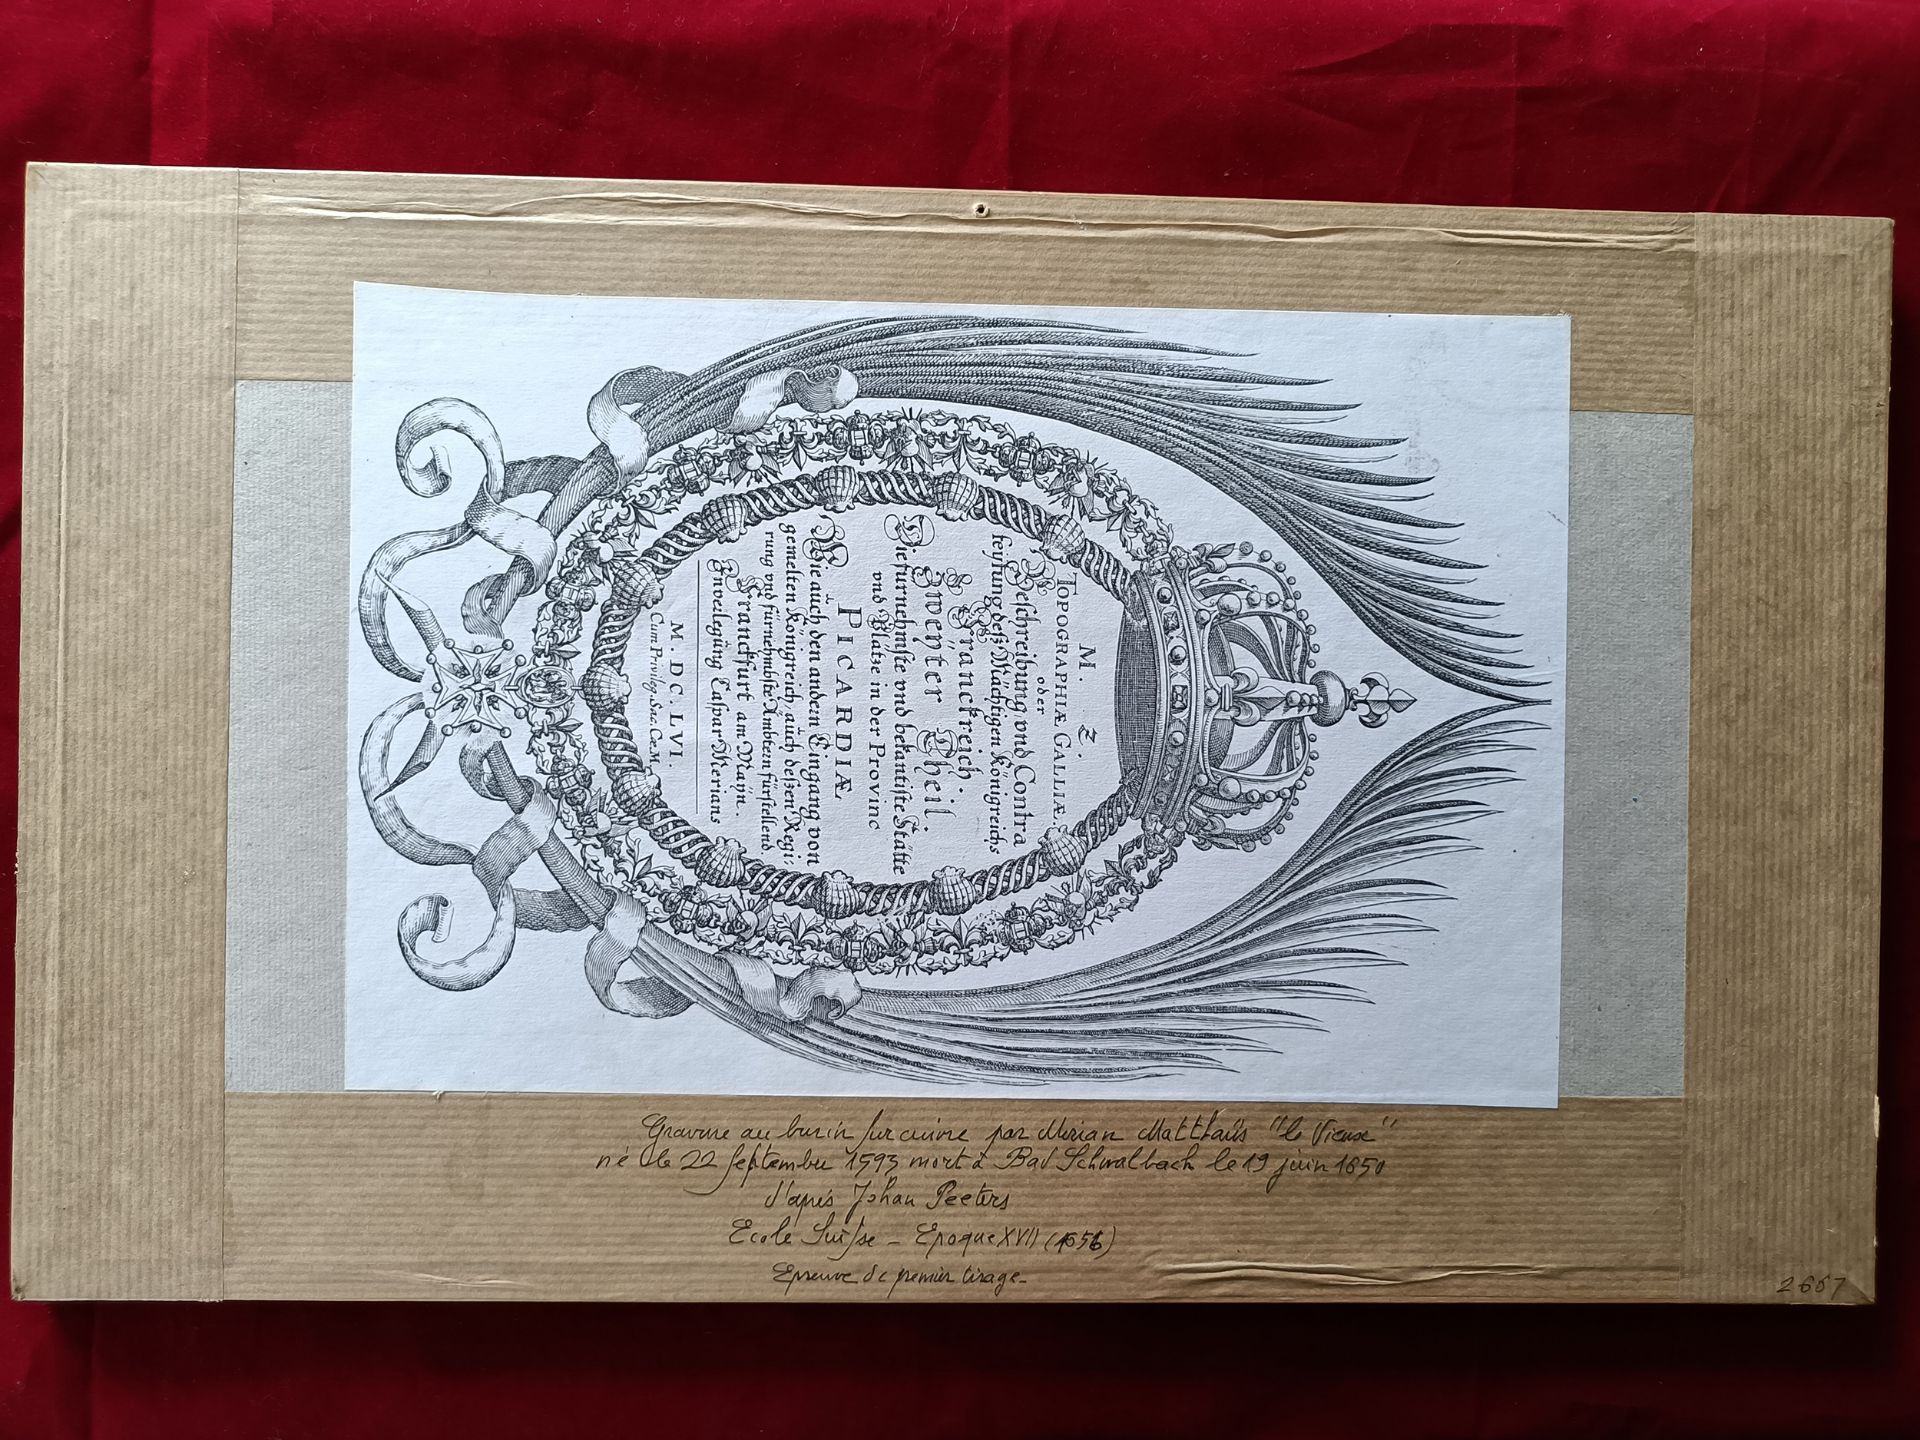 M. Z.
TOPOGRAPHIÆ GALLIÆ,
oder
Beschreibung vnd Contra
feyttung deß Mächtigen Königreichs
Franckreich
Zweyter Theil:
Die fürnehmste vnd bekantiste Stätte
vnd Plätze in der Provinc
PICARDIÆ
Wie auch den andern Eingang von
gemelten Königreich, auch deßen Regi:
rung vnd fürnehmbste Ämbtern fürstellend.
Franckfurt am Mayn.
In verlegung Caspar Merians
M. DC. LVI.
Cum Privileg. Sac. Cæ. M.
Gravure au burin sur cuivre par Mérian Matthaüs "le Vieux"
né le 22 septembre 1593 mort à Bad Schwalbach le 19 juin 1650
d'après Johan Peeters
Ecole Suisse - Epoque XVII (1656)
Epreuve de premier tirage -
2667